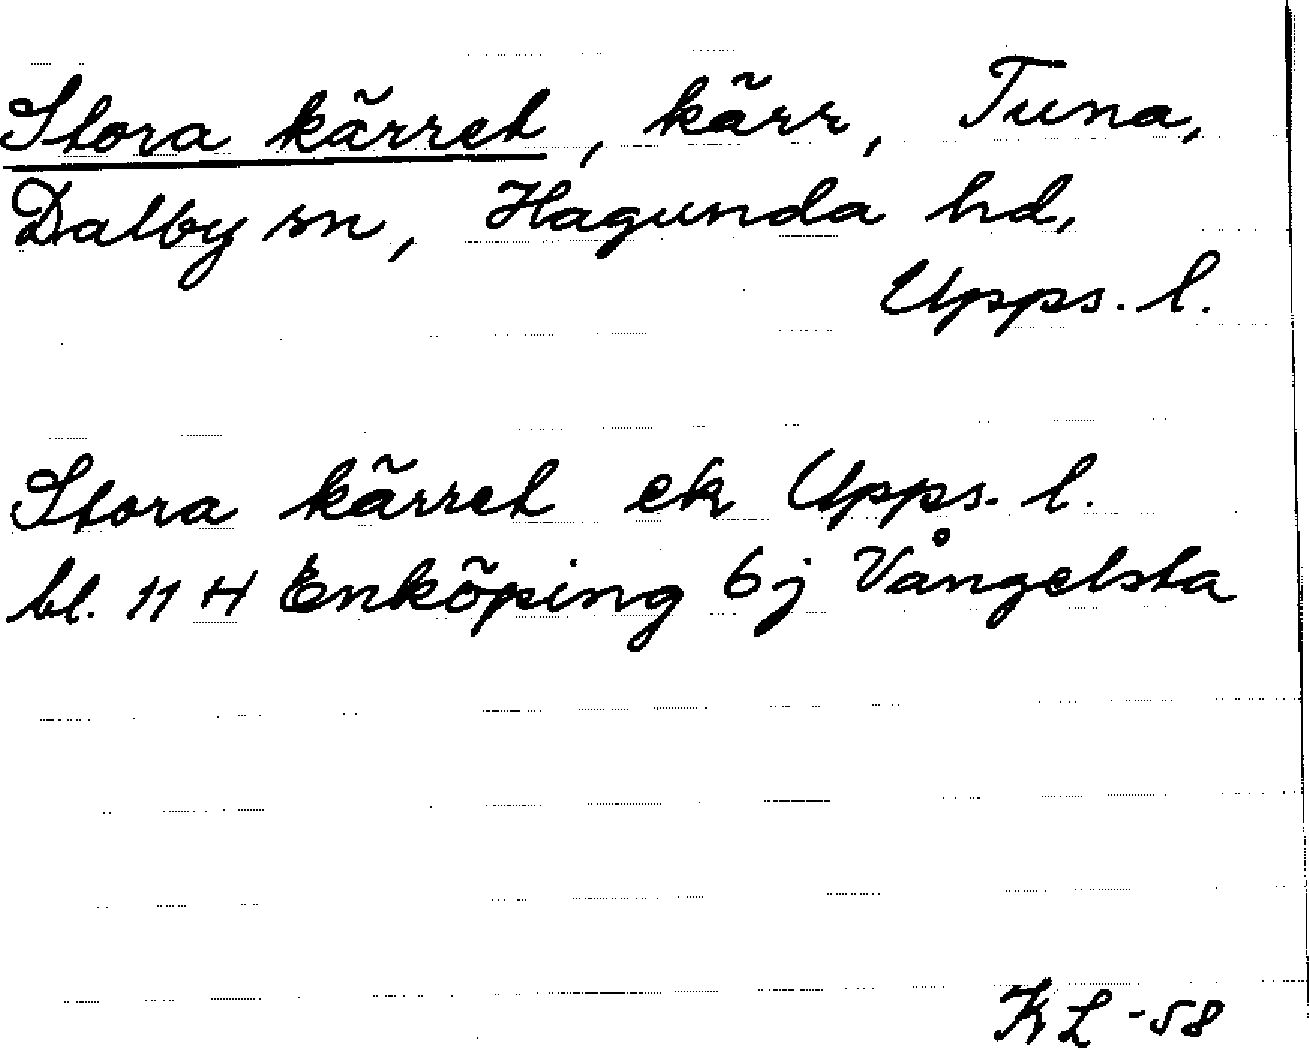 Stora kärret, kärr, Tuna,
Dalby sn, Hagunda hd,
Upps. l.
Stora kärret ek Upps. l.
bl. 11 H Enköping 6j Vångelsta
KL -58